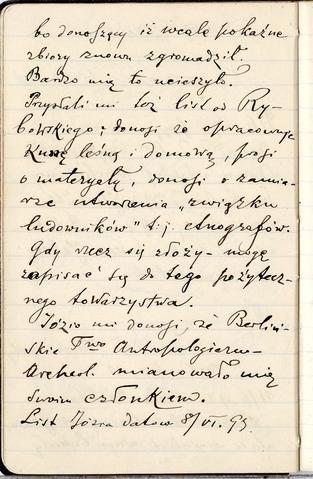 bo donoszący iż wcale pokaźne
zbiory znowu zgromadził.
Bardzo mię to ucieszyło.
Przysłali mi też list od Ry-
bowskiego; donosi że opracowuje
Kunę leśną i domową, prosi
o materyały, donosi o zamia-
rze utworzenia "związku
ludowników" t:j. etnografów.
Gdy rzecz się złoży - mogę
zapisać się do tego pożytecz-
nego towarzystwa.
Józio mi donosi, że Berliń-
skie Two Antropologiczno-
Archeol. mianowało mię
swoim członkiem.
List Józia datow 8/VI. 93.